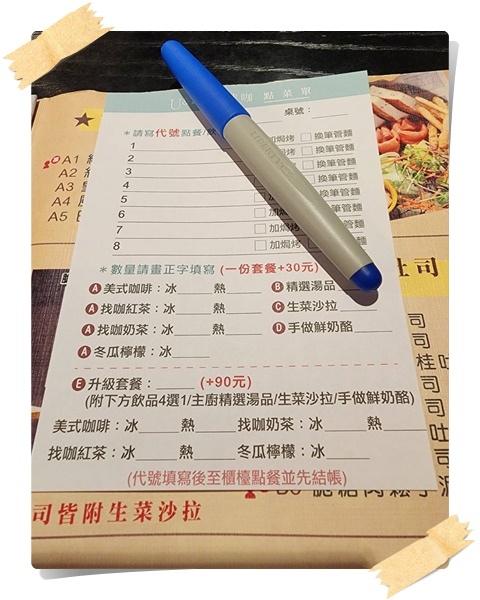 咖 點 菜 單
桌號：
＊請寫代號點餐/飲
1 加焗烤 □ 換筆管麵
2 □ 換筆管麵
3 □ 換筆管麵
4 □ 換筆管麵
5 □ 加 換筆管麵
6 □ 加焗 換筆管麵
7 □ 加焗烤 □ 管麵
8 □ 加焗烤 筆管麵
＊數量請畫正字填寫 (一份套餐+30元)
A 美式咖啡：冰____ 熱____ B 精選湯品
A 找咖紅茶：冰____ 熱____ C 生菜沙拉____
A 找咖奶茶：冰____ 熱____ D 手做鮮奶酪____
A 冬瓜檸檬：冰____
E 升級套餐：____ (+90元)
(附下方飲品4選1/主廚精選湯品/生菜沙拉/手做鮮奶酪)
美式咖啡：冰____ 熱____找咖奶茶：冰____ 熱____
找咖紅茶：冰____ 熱____冬瓜檸檬：冰____
(代號填寫後至櫃檯點餐並先結帳)
A1
A2
A3
A4
A5
吐司
司
司
桂
司
司
吐
司
司皆附生菜沙拉